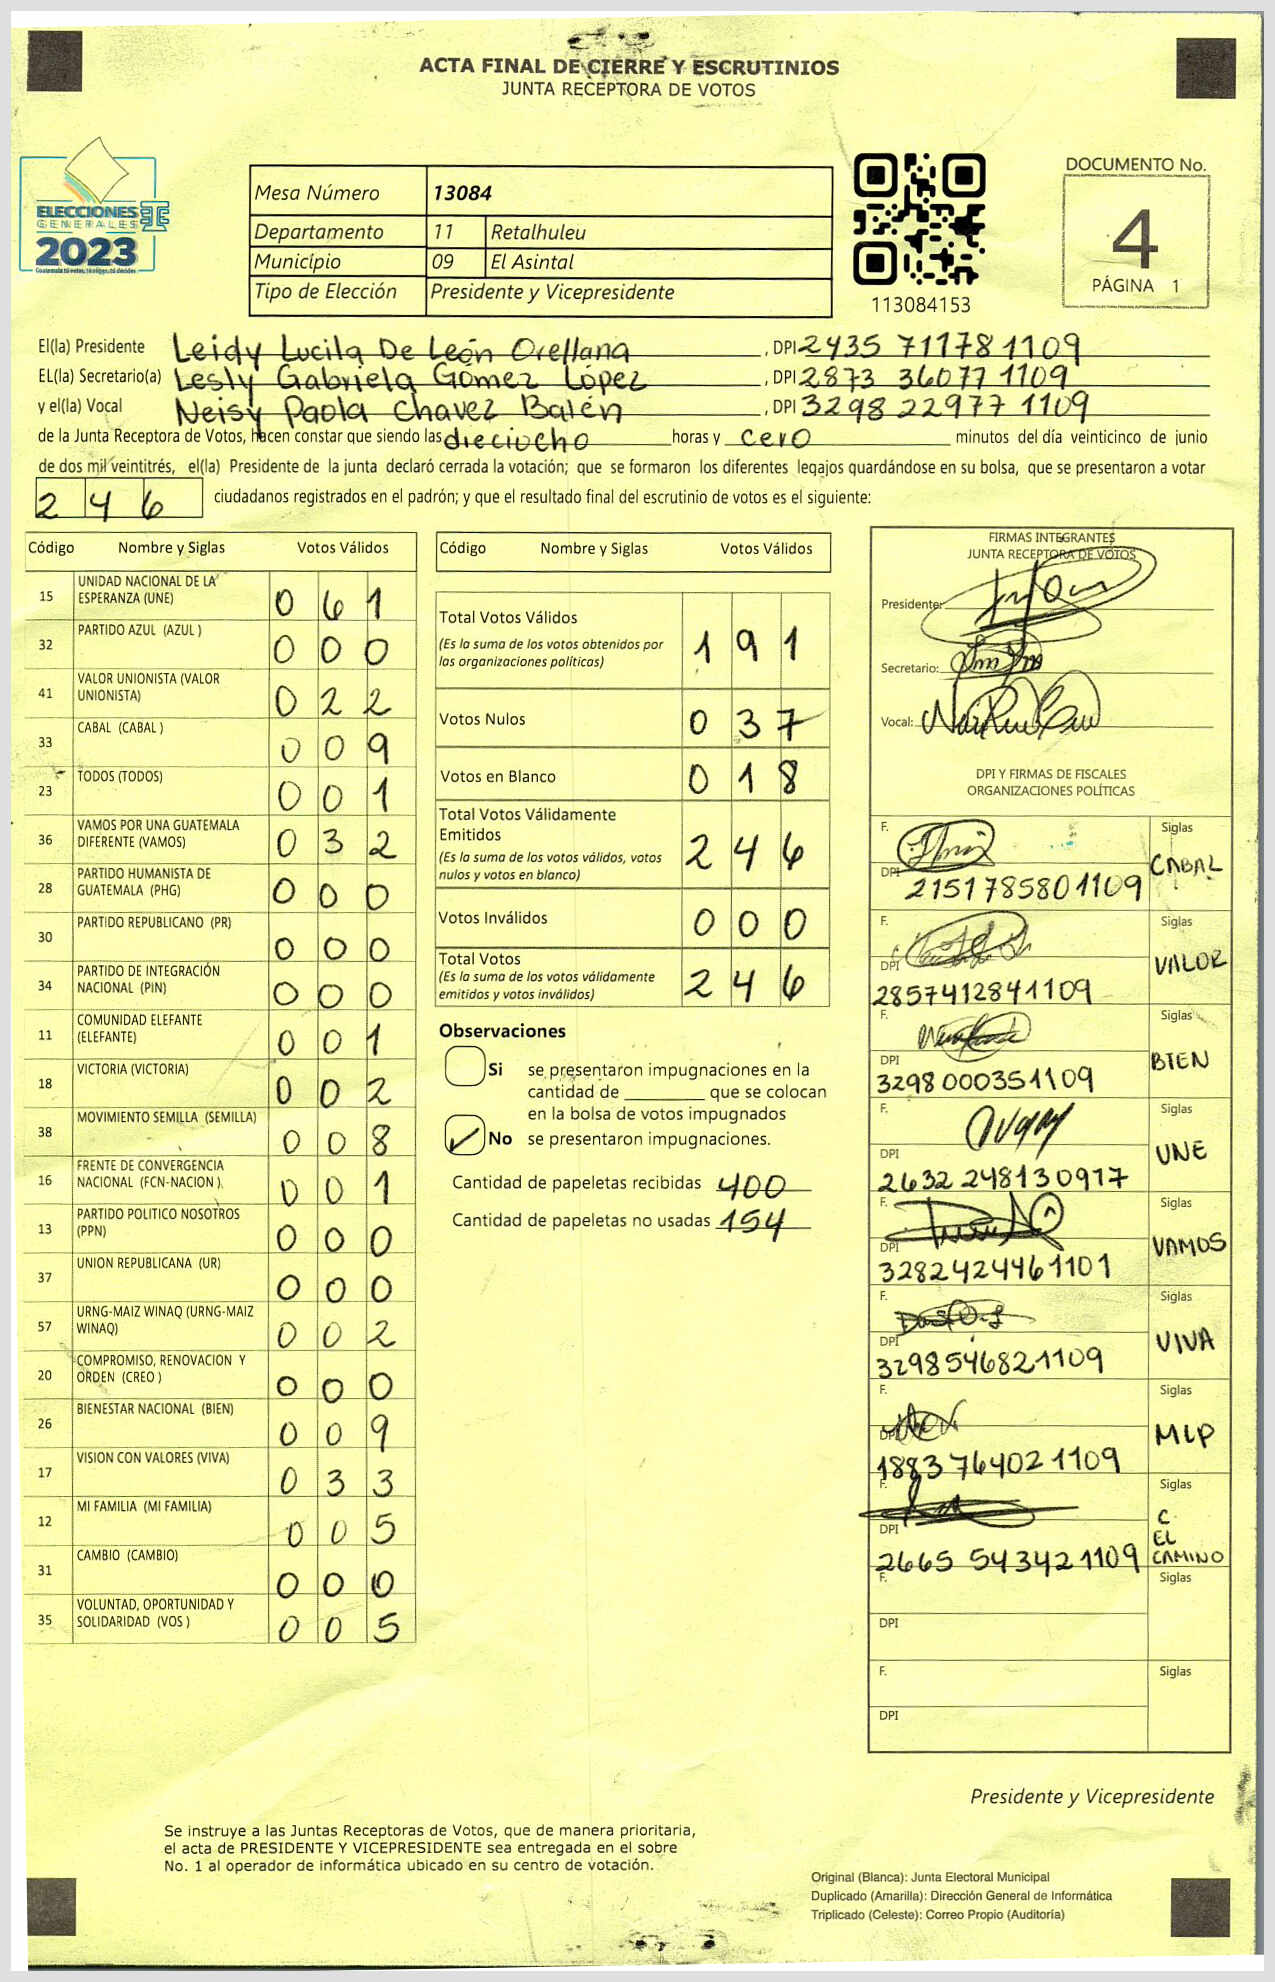 ACTA FINAL DE CIERRE Y ESCRUTINIOS
JUNTA RECEPTORA DE VOTOS
ELECCIONES
GENERALES
2023
Guatemala tú votas, tú eliges, tú decides
Mesa Número 13084
Departamento 11 Retalhuleu
Municipio 09 El Asintal
Tipo de Elección Presidente y Vicepresidente
113084153
DOCUMENTO No.
4
PÁGINA 1
El(la) Presidente Leidy Lucila De León Orellana, DPI 2435 71178 1109
EL(la) Secretario(a) Lesly Gabriela Gómez López, DPI 2873 36077 1109
y el(la) Vocal Neisy Paola Chavez Balén, DPI 3298 22977 1109
de la Junta Receptora de Votos, hacen constar que siendo las dieciocho horas y cero minutos del día veinticinco de junio
de dos mil veintitrés, el(la) Presidente de la junta declaró cerrada la votación; que se formaron los diferentes legajos guardándose en su bolsa, que se presentaron a votar
246 ciudadanos registrados en el padrón; y que el resultado final del escrutinio de votos es el siguiente:
Código Nombre y Siglas Votos Válidos
15 UNIDAD NACIONAL DE LA ESPERANZA (UNE) 061
32 PARTIDO AZUL (AZUL ) 000
41 VALOR UNIONISTA (VALOR UNIONISTA) 022
33 CABAL (CABAL ) 009
23 TODOS (TODOS) 001
36 VAMOS POR UNA GUATEMALA DIFERENTE (VAMOS) 032
28 PARTIDO HUMANISTA DE GUATEMALA (PHG) 000
30 PARTIDO REPUBLICANO (PR) 000
34 PARTIDO DE INTEGRACIÓN NACIONAL (PIN) 000
11 COMUNIDAD ELEFANTE (ELEFANTE) 001
18 VICTORIA (VICTORIA) 002
38 MOVIMIENTO SEMILLA (SEMILLA) 008
16 FRENTE DE CONVERGENCIA NACIONAL (FCN-NACION ). 001
13 PARTIDO POLITICO NOSOTROS (PPN) 000
37 UNION REPUBLICANA (UR) 000
57 URNG-MAIZ WINAQ (URNG-MAIZ WINAQ) 002
20 COMPROMISO, RENOVACION Y ORDEN (CREO ) 000
26 BIENESTAR NACIONAL (BIEN) 009
17 VISION CON VALORES (VIVA) 033
12 MI FAMILIA (MI FAMILIA) 005
31 CAMBIO (CAMBIO) 000
35 VOLUNTAD, OPORTUNIDAD Y SOLIDARIDAD (VOS ) 005
Código Nombre y Siglas Votos Válidos
Total Votos Válidos 191
(Es la suma de los votos obtenidos por
las organizaciones políticas)
Votos Nulos 037
Votos en Blanco 018
Total Votos Válidamente
Emitidos 246
(Es la suma de los votos válidos, votos
nulos y votos en blanco)
Votos Inválidos 000
Total Votos 246
(Es la suma de los votos válidamente
emitidos y votos inválidos)
Observaciones
Si se presentaron impugnaciones en la
cantidad de ________ que se colocan
en la bolsa de votos impugnados
No se presentaron impugnaciones.
Cantidad de papeletas recibidas 400
Cantidad de papeletas no usadas 154
FIRMAS INTEGRANTES
JUNTA RECEPTORA DE VOTOS
Presidente:
Secretario:
Vocal:
DPI Y FIRMAS DE FISCALES
ORGANIZACIONES POLÍTICAS
F. Siglas
DPI 2151785801109 CABAL
F. Siglas
DPI 2857412841109 VALOR
F. Siglas
DPI 3298000351109 BIEN
F. Siglas
DPI 2632 248130917 UNE
F. Siglas
DPI 3282424461101 VAMOS
F. Siglas
DPI 3298546821109 VIVA
F. Siglas
DPI 1883764021109 MLP
F. Siglas
DPI 2665 543421109 C EL CAMINO
F. Siglas
DPI
F. Siglas
DPI
Presidente y Vicepresidente
Se instruye a las Juntas Receptoras de Votos, que de manera prioritaria,
el acta de PRESIDENTE Y VICEPRESIDENTE sea entregada en el sobre
No. 1 al operador de informática ubicado en su centro de votación.
Original (Blanca): Junta Electoral Municipal
Duplicado (Amarilla): Dirección General de Informática
Triplicado (Celeste): Correo Propio (Auditoría)